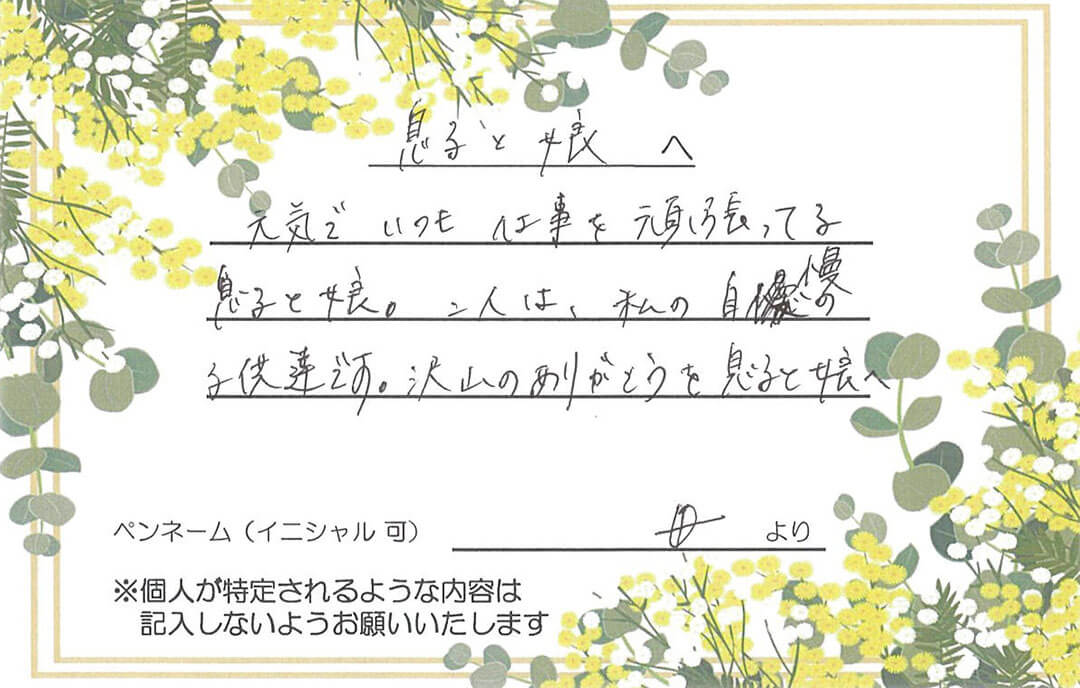 息子と娘 へ
元気で いつも 仕事を 頑張ってる
息子と娘。二人は、私の自慢の
子供達です。沢山のありがとうを息子と娘へ
ペンネーム（イニシャル 可） 母 より
※個人が特定されるような内容は
記入しないようお願いいたします